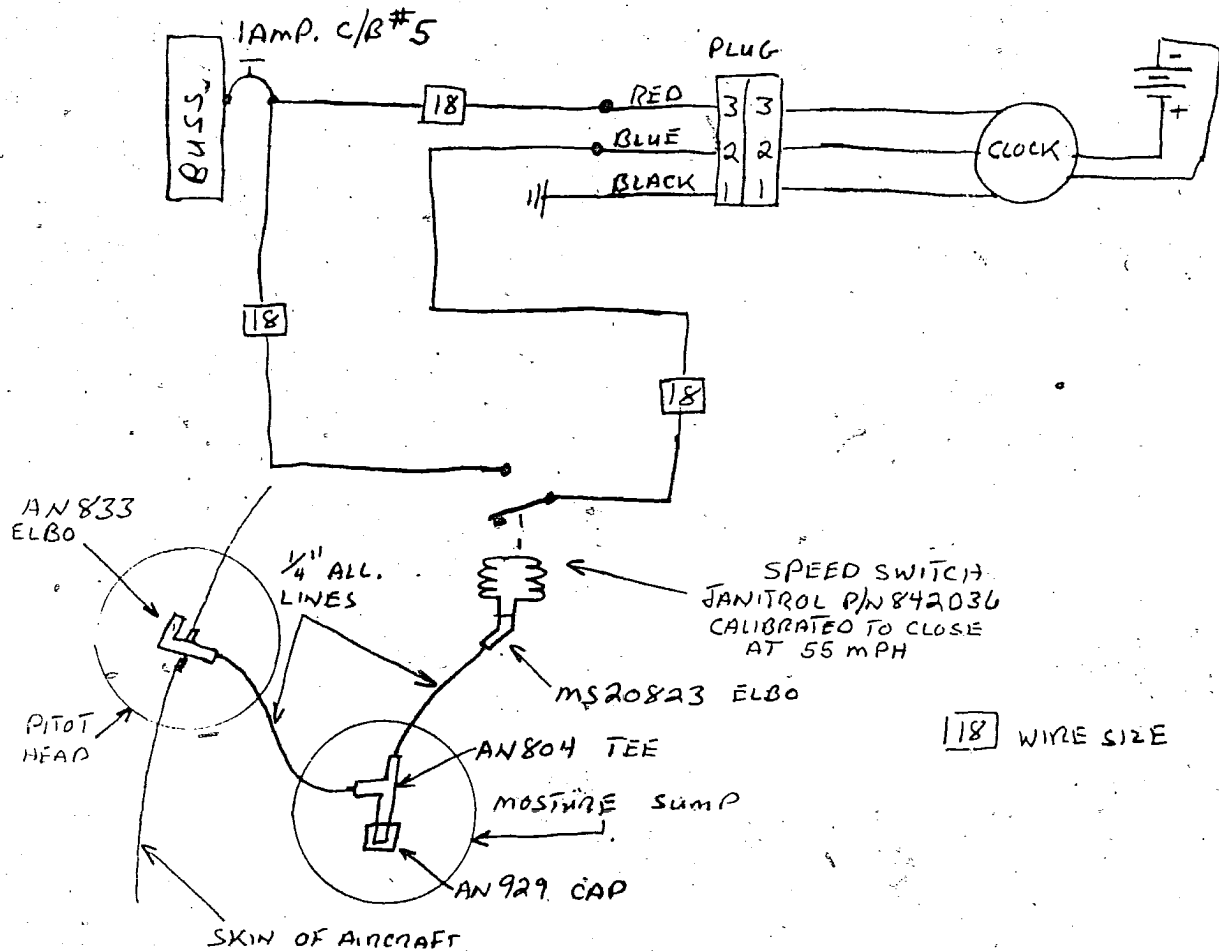 1AMP. C/B #5
BUSS
PLUG
18
RED
3 3
BLUE
2 2
BLACK
1 1
CLOCK
-
+
18
18
AN833
ELBO
1/4" ALL.
LINES
SPEED SWITCH
JANITROL P/N 842036
CALIBRATED TO CLOSE
AT 55 MPH
MS20823 ELBO
PITOT
HEAD
AN804 TEE
18 WIRE SIZE
MOSTURE SUMP
AN929 CAP
SKIN OF AIRCRAFT